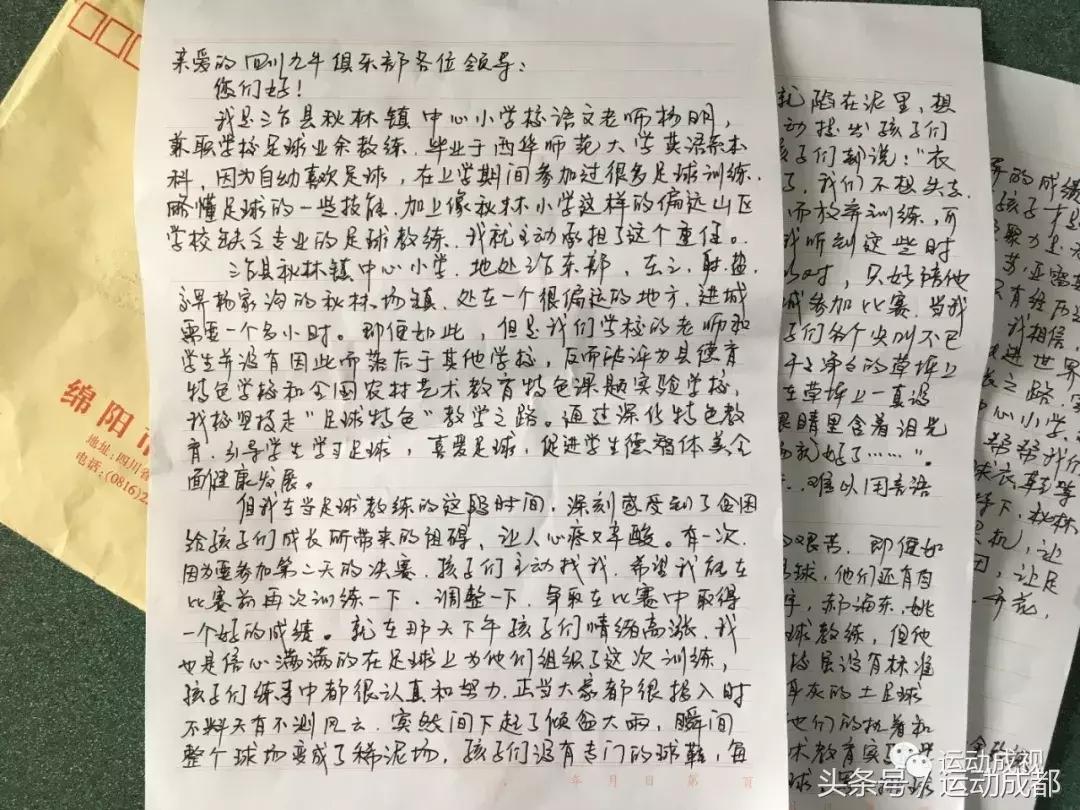 亲爱的四川九牛俱乐部各位领导：
您们好！
我是三台县秋林镇中心小学校语文老师杨明，
兼职学校足球业余教练。毕业于西华师范大学英语系本
科，因为自幼喜欢足球，在上学期间参加过很多足球训练。
略懂足球的一些技能。加上像秋林小学这样的偏远山区
学校缺乏专业的足球教练，我就主动承担了这个重任。
三台县秋林镇中心小学，地处三台东部，在三、射、盐、
交界杨家沟的秋林场镇，处在一个很偏远的地方，进城
需要一个多小时。即便如此，但是我们学校的老师和
学生并没有因此而落后于其他学校，反而被评为县德育
特色学校和全国农村艺术教育特色课题实验学校，
我校坚持走“足球特色”教学之路。通过深化特色教
育，引导学生学习足球，喜爱足球，促进学生德智体美全
面健康发展。
但我在当足球教练的这段时间，深刻感受到了贫困
给孩子们成长所带来的阻碍，让人心疼又辛酸。有一次，
因为要参加第二天的决赛，孩子们主动找我，希望我能在
比赛前再次训练一下，调整一下，争取在比赛中取得
一个好的成绩。就在那天下午孩子们情绪高涨，我
也是信心满满的在足球上为他们组织了这次训练，
孩子们练习中都很认真和努力。正当大家都很投入时
不料天有不测风云，突然间下起了倾盆大雨，瞬间
整个球场变成了稀泥场，孩子们没有专门的球鞋，每
年 月 日 第 页
陷在泥里，想
动提出孩子们
孩子们都说：“衣
了，我们不想失去
而放弃训练，可
我听到这些时
时，只好陪他
城参加比赛，当我
子们各个尖叫不已
干干净净的草坪上
在草坪上一直没
眼睛里含着泪光
就好了……”。
难以用言语
艰苦，即便如
球，他们还有自
郝海东、姚
球教练，但他
层没有标准
灰的土足球
他们的执着和
术教育实
的成绩
孩子
聚力
只有经历
我相信，
进世界
之路，
心小学
帮帮我们
球衣、鞋等
下，秋林
机，让
让足
开花，
绵阳市
地址：四川省
电话：(0816)2
运动成视
头条号／运动成都